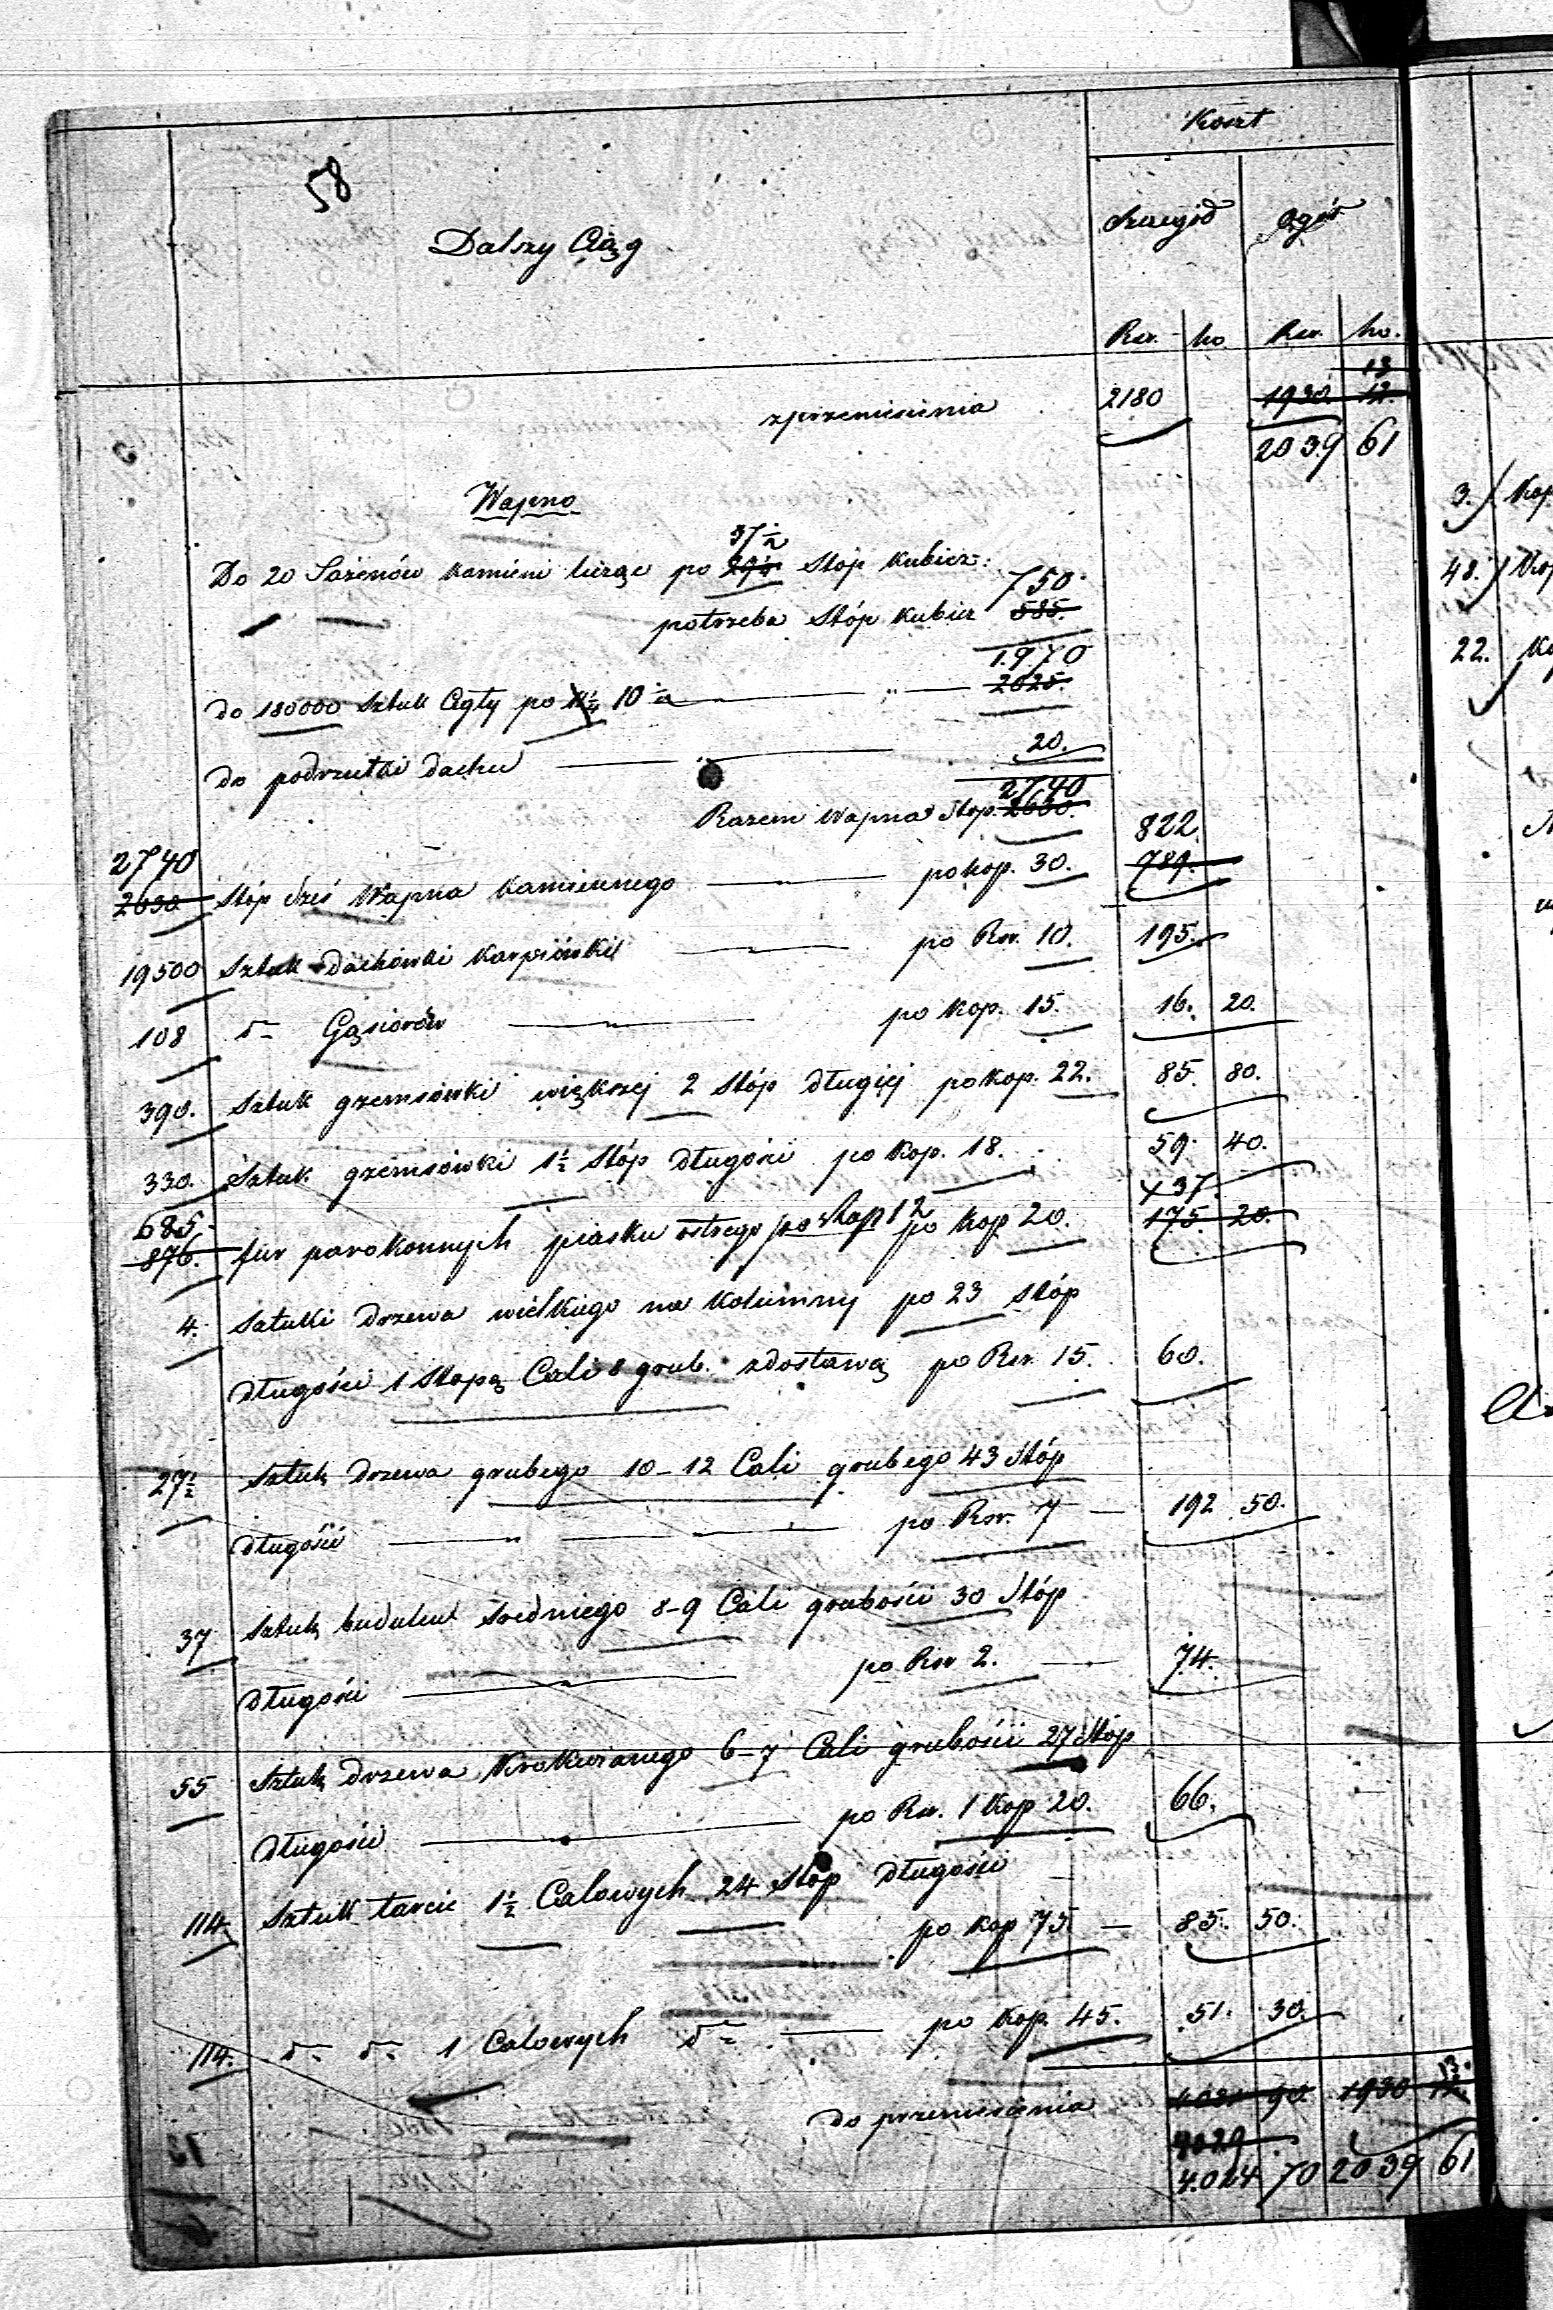 58
Koszt
Dalszy Ciąg
Szczegół Ogół
Rsr. ko. Rsr. ko.
13
zprzeniesienia 2180 1930. 12.
2039 61
Wapno
37½
Do 20 Sążenów kamieni licząc po 29¼ Stóp kubicz:
750
potrzeba Stóp kubicz 585.
1970
do 180000 Sztuk Cegły po 11¼ 10½ — " — 2025.
do podrzutki dachu — " — 20.
2740
Razem Wapna Stóp. 2630.
2740 822
2630 Stóp sześ Wapna kamiennego — " — po kop. 30. 789.
19500 Sztuk dachówki karpiówki — " — po Rsr. 10. 195.
108 do Gąsiorów — " — po kop. 15. 16. 20.
390. Sztuk gzemsówki większej 2 Stóp długiej po kop. 22. 85. 80.
330. Sztuk gzemsówki 1½ Stóp długości po kop. 18. 59. 40.
685. 137.
876. fur parokonnych piasku ostrego po kop 12 po kop 20. 175 20.
4. Sztuki drzewa wielkiego na kolumny po 23 stóp
długości 1 Stopę Cali 8 grub. zdostawą po Rsr. 15. 60.
27½ Sztuk drzewa grubego 10–12 Cali grubego 43 Stóp
długości — " — " — po Rsr. 7 — 192 50.
37 Sztuk budulcu średniego 8–9 Cali grubości 30 Stóp
długości — " — po Rsr 2. — 74.
55 Sztuk drzewa krokwianego 6–7 Cali grubości 27 Stóp
długości — " — po Rsr. 1 kop 20. 66.
114. Sztuk tarcic 1½ Calowych 24 Stóp długości
po kop 75. — 85. 50.
114. do do 1 Calowych do — po kop. 45. 51. 30.
13.
do przeniesienia 90. 1930 12.
4029
4.024 70 2039 61
3. Kop
48.
22.